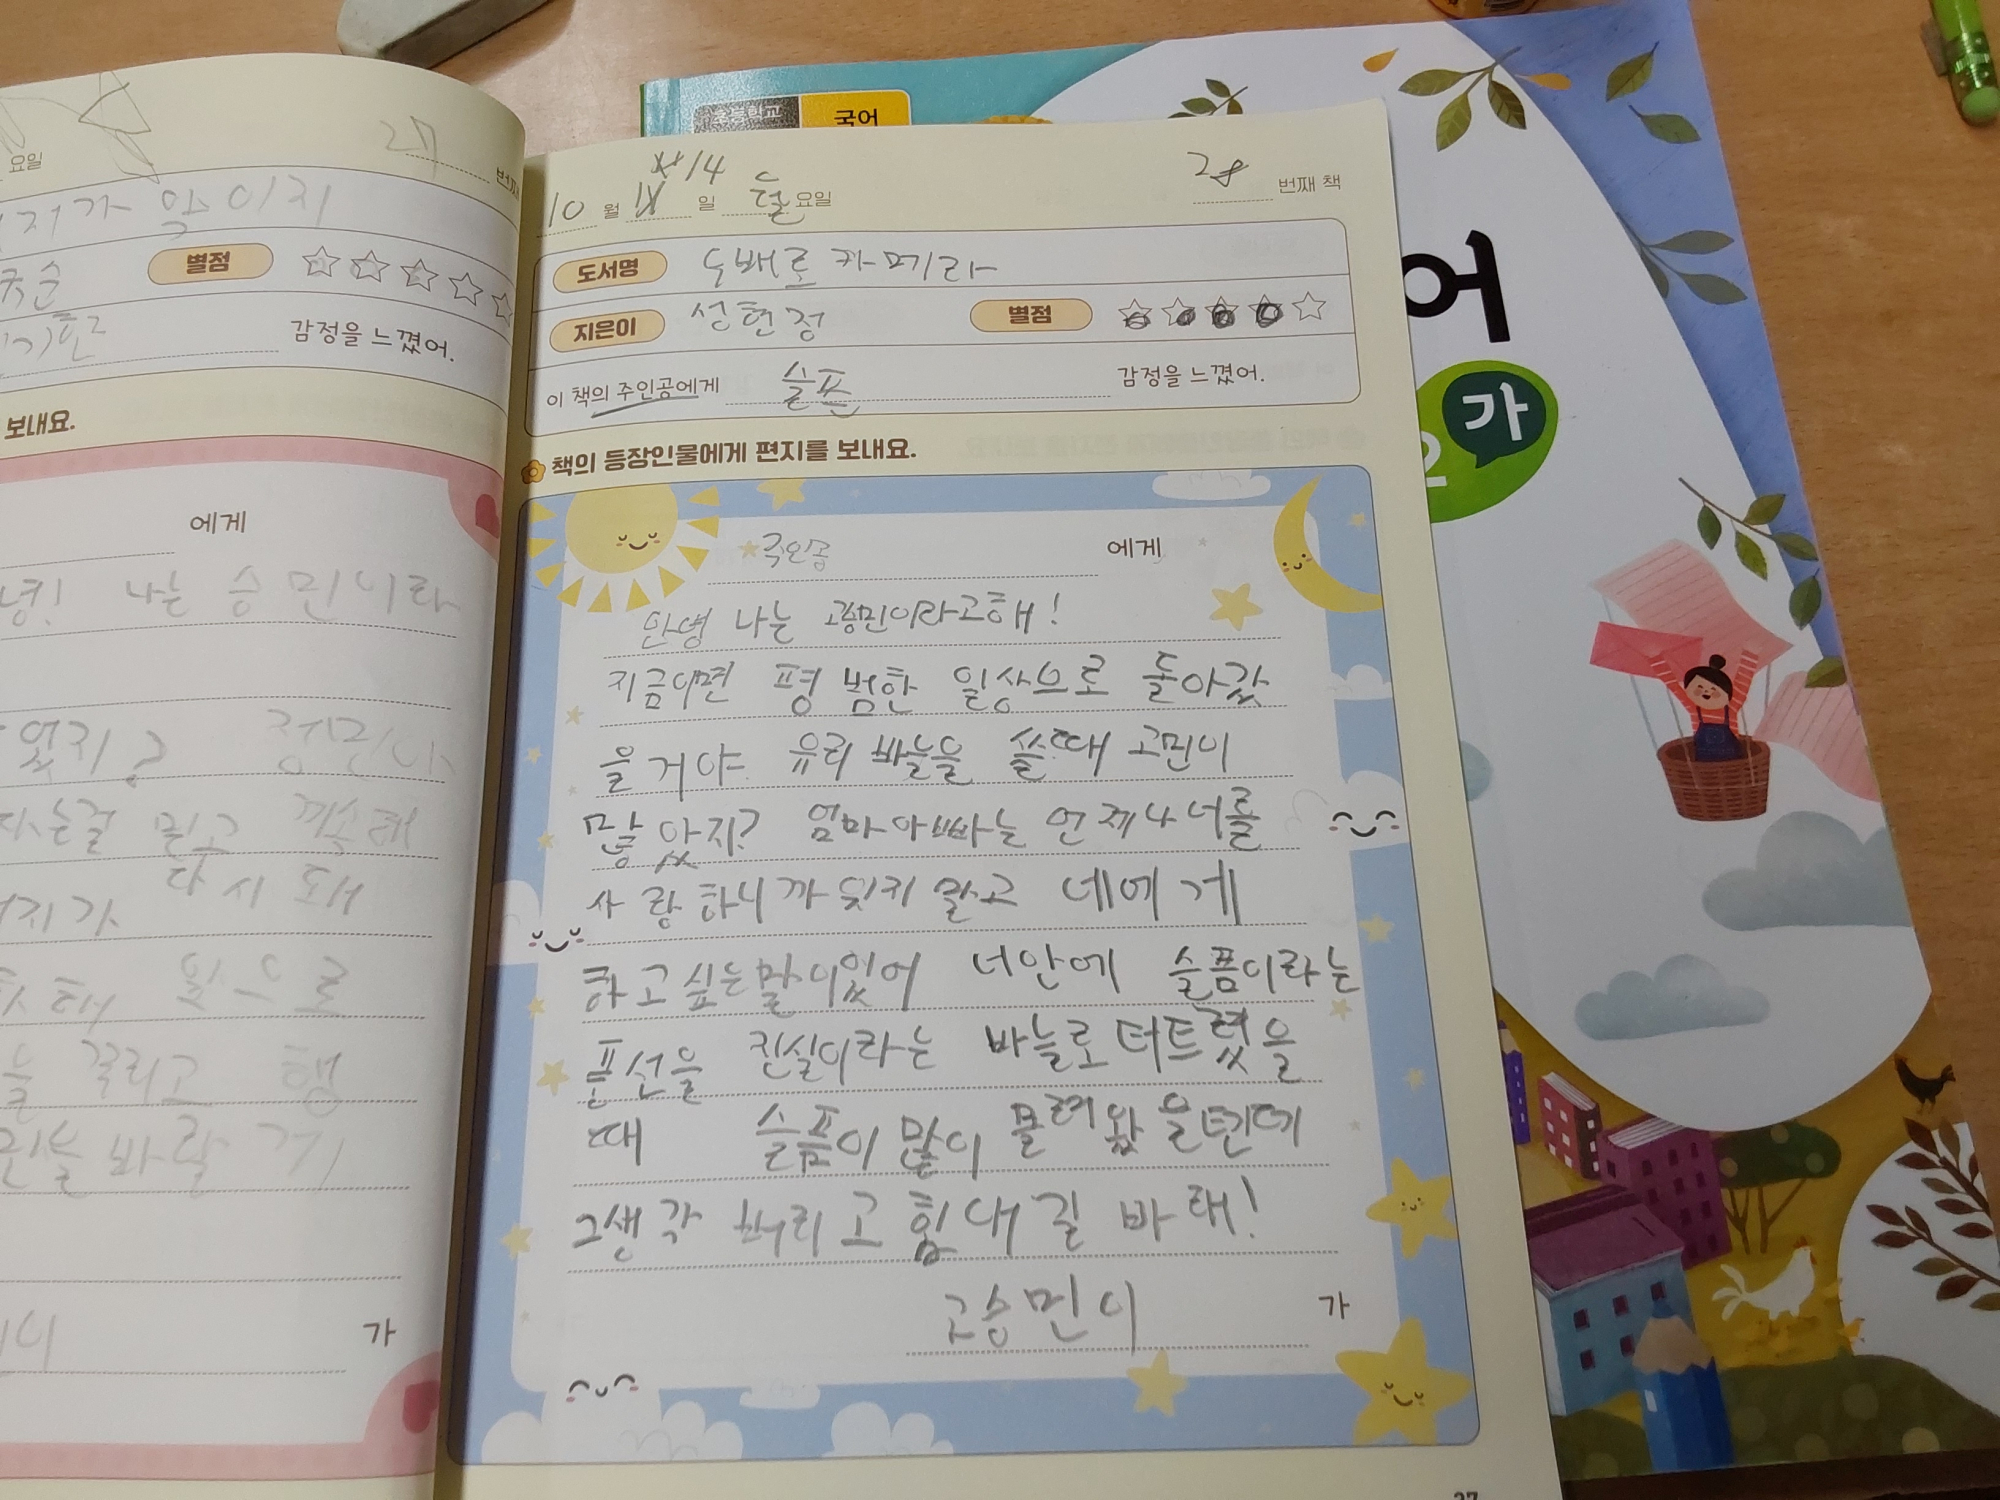 초등학교 국어
어
2 가
요일 27 번째
지가 않이지
별점
감정을 느꼈어.
보내요.
에게
녕! 나는 승민이라
었지?
믿고 계속해
지가 다시 돼
으로
을 꾸리고 행
바랄게
가
10 월 14 일 월 요일 28 번째 책
도서명 두배로 카메라
지은이 성현정 별점
이 책의 주인공에게 슬픈 감정을 느꼈어.
책의 등장인물에게 편지를 보내요.
주인공 에게
안녕 나는 고승민이라고해!
지금이면 평범한 일상으로 돌아갔
을거야 유리 바늘을 쓸때 고민이
많았지? 엄마아빠는 언제나 너를
사랑하니까 잊지 말고 네에게
하고싶는말이있어 너안에 슬픔이라는
푼선을 진실이라는 바늘로 터트렸을
때 슬픔이 많이 몰려왔을텐데
그생각 버리고 힘내길 바래!
고승민이 가
37